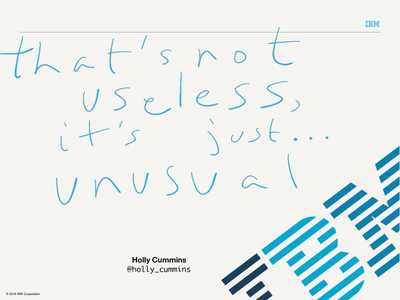 IBM
that's not
useless,
it's just...
unusual
Holly Cummins
@holly_cummins
IBM
© 2016 IBM Corporation